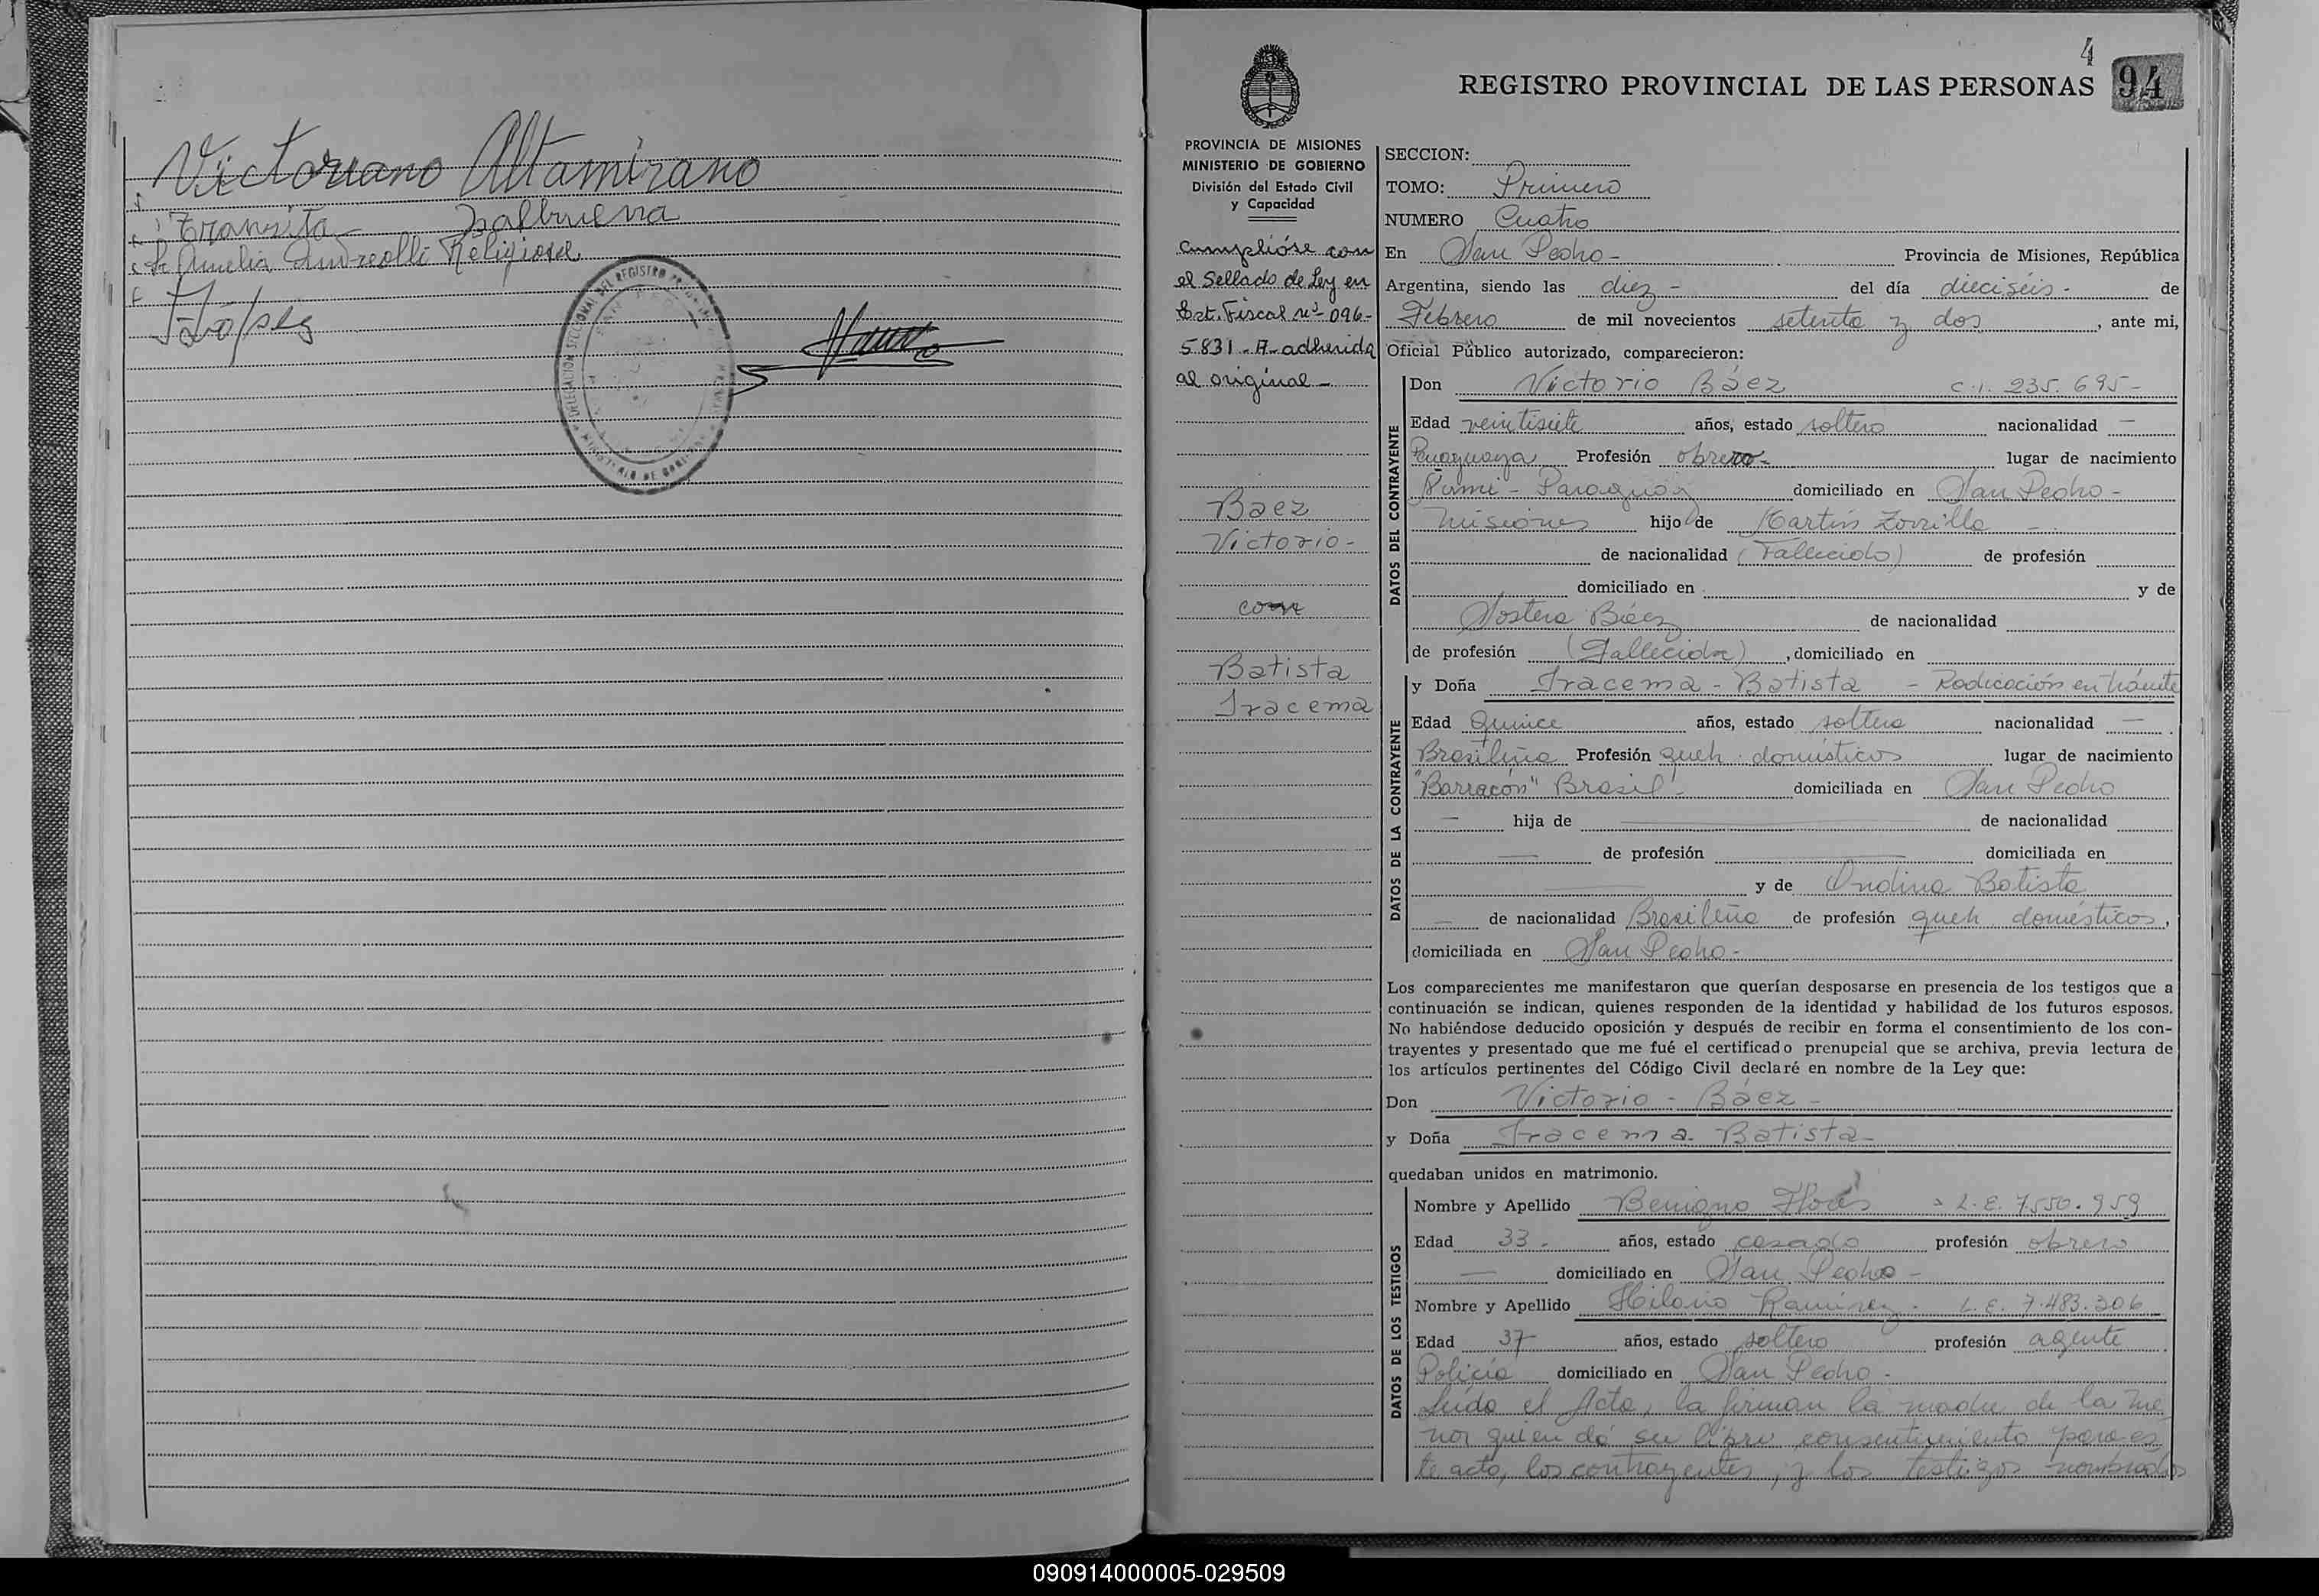 Victoriano Altamirano
Transita Balbuena
Amelia Andreolli Religiosa
4
REGISTRO PROVINCIAL DE LAS PERSONAS 94
PROVINCIA DE MISIONES
MINISTERIO DE GOBIERNO
División del Estado Civil
y Capacidad
Cumplióse con
el Sellado de Ley en
Est. Fiscal Nº 096-
5831-A-adherida
al original-
Baez
Victorio-
con
Batista
Iracema
SECCION:
TOMO: Primero
NUMERO Cuatro
En San Pedro- Provincia de Misiones, República
Argentina, siendo las diez- del día dieciséis- de
Febrero de mil novecientos setenta y dos, ante mi,
Oficial Público autorizado, comparecieron:
DATOS DEL CONTRAYENTE
Don Victorio Báez C.I. 235.695-
Edad veintisiete años, estado soltero nacionalidad —
Paraguaya Profesión obrero- lugar de nacimiento
- Paraguay domiciliado en San Pedro-
Misiones hijo de Martin Zorrilla -
de nacionalidad (Fallecido) de profesión
domiciliado en y de
Báez de nacionalidad
de profesión (Fallecida), domiciliado en
DATOS DE LA CONTRAYENTE
y Doña Iracema - Batista - Radicación en trámite
Edad Quince años, estado soltera nacionalidad —
Brasileña Profesión queh. domésticos lugar de nacimiento
"Barracón" Brasil- domiciliada en San Pedro
— hija de — de nacionalidad
— de profesión — domiciliada en
— y de Ondina Batista
— de nacionalidad Brasileña de profesión queh. domésticos,
domiciliada en San Pedro-
Los comparecientes me manifestaron que querían desposarse en presencia de los testigos que a
continuación se indican, quienes responden de la identidad y habilidad de los futuros esposos.
No habiéndose deducido oposición y después de recibir en forma el consentimiento de los con-
trayentes y presentado que me fué el certificado prenupcial que se archiva, previa lectura de
los artículos pertinentes del Código Civil declaré en nombre de la Ley que:
Don Victorio - Báez -
y Doña Iracema Batista-
quedaban unidos en matrimonio.
DATOS DE LOS TESTIGOS
Nombre y Apellido Benigno Flores L.E. 7.550.959
Edad 33- años, estado casado profesión obrero
— domiciliado en San Pedro-
Nombre y Apellido Hilario Ramírez- L.E. 7.483.306
Edad 37 años, estado soltero profesión agente
Policía domiciliado en San Pedro-
Leída el Acta, la firman la madre de la me
nor quien dá su libre consentimiento para es
te acto, los contrayentes, y los testigos nombrados
090914000005-029509